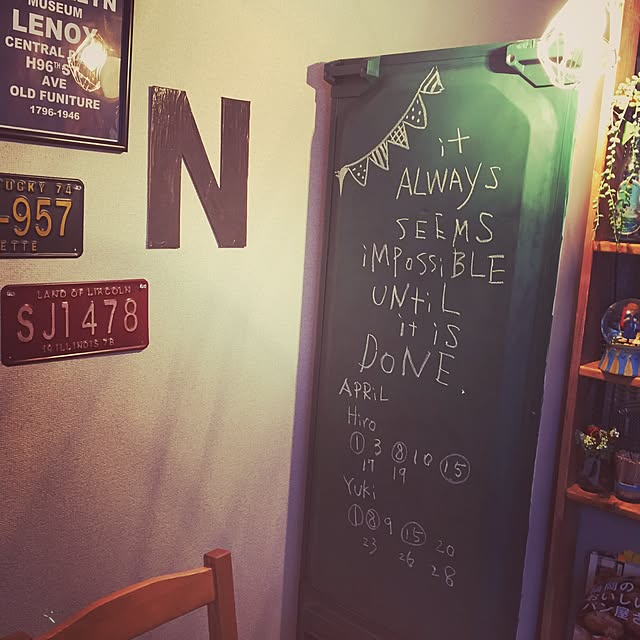 MUSEUM
LENOX
CENTRAL
H96TH
AVE
OLD FUNITURE
1796-1946
N
74
-957
ETTE
LAND OF LINCOLN
SJ1478
ILLINOIS 78
it
ALWAYS
SEEMS
iMPOSSiBLE
UNTiL
it iS
DONE.
APRiL
Hiro
① 3 ⑧ 10 ⑮
17 19
Yuki
① ⑧ 9 ⑮ 20
23 26 28
おいしい
パン屋